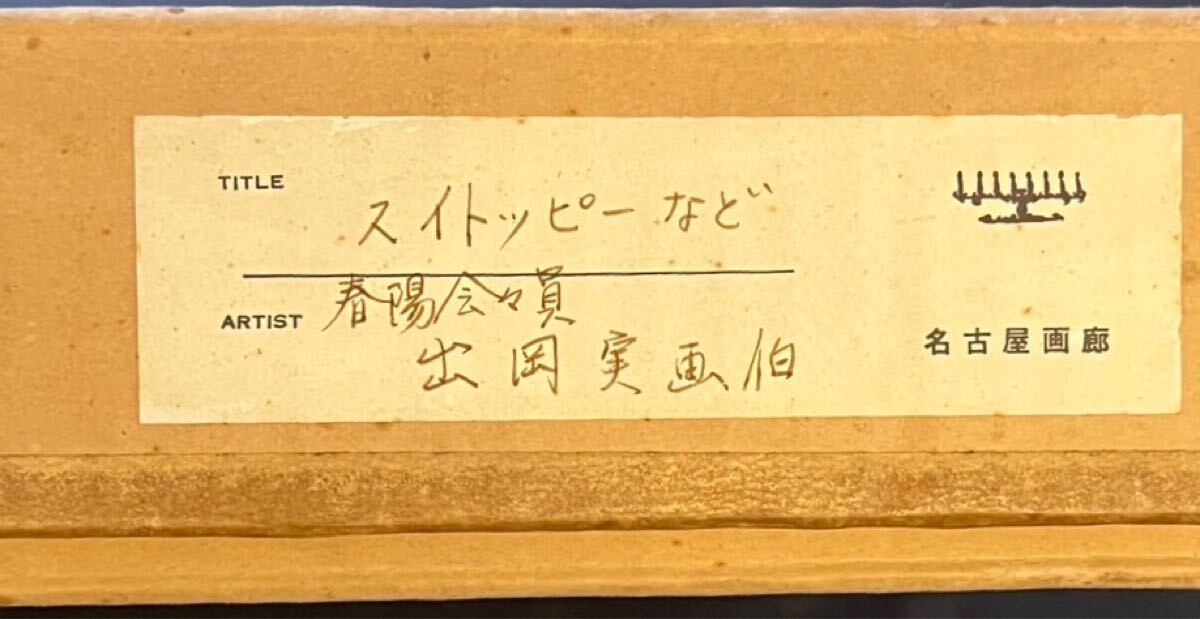 TITLE
スイトッピーなど
ARTIST
春陽会々員
出岡実画伯
名古屋画廊